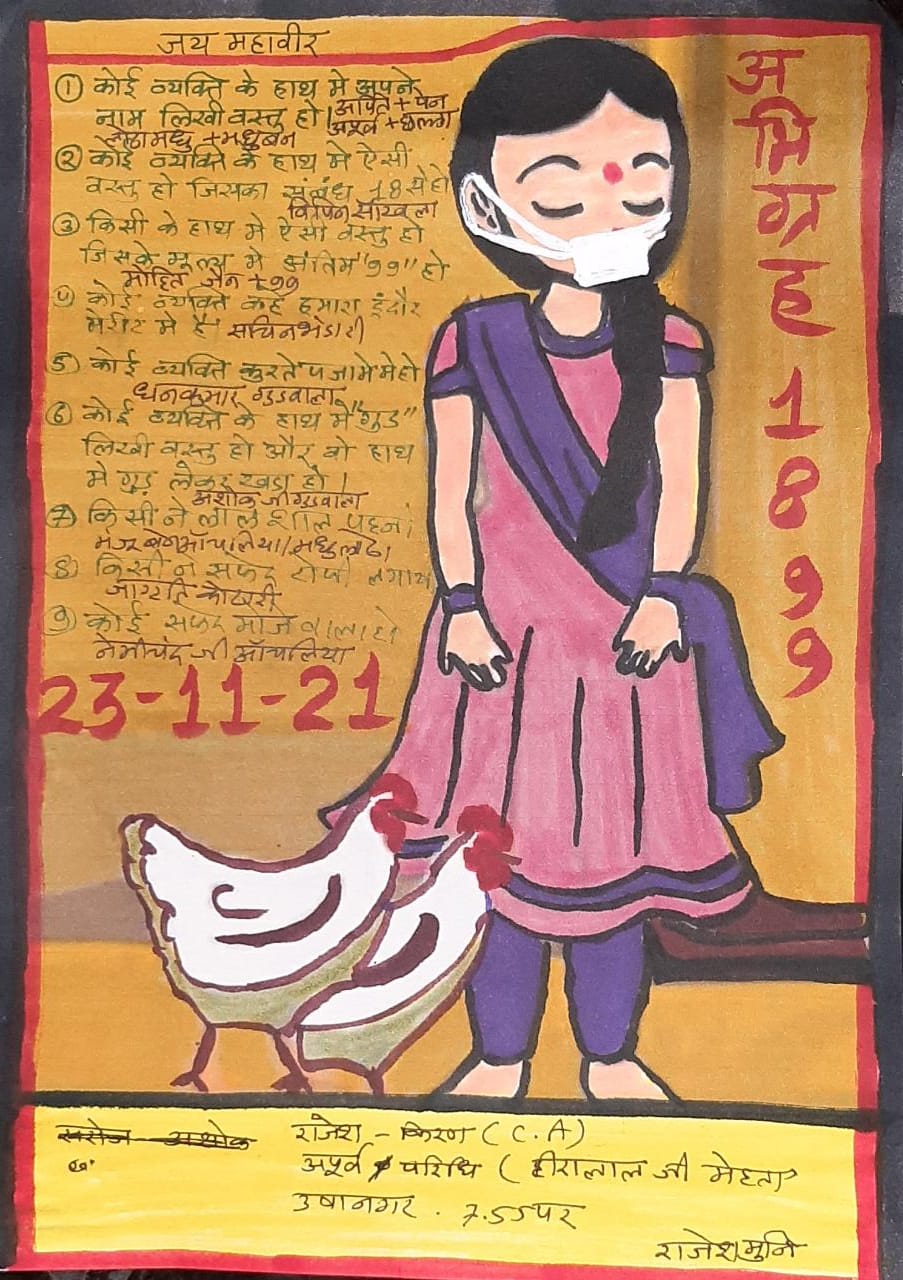 जय महावीर
① कोई व्यक्ति के हाथ मे अपने
नाम लिखी वस्तु हो। अर्पित + पेन
अपूर्व +
लोढा मधु + मधुबन
② कोई व्यक्ति के हाथ मे ऐसी
वस्तु हो जिसका संबंध 18 से हो
विपिन सांखला
③ किसी के हाथ मे ऐसी वस्तु हो
जिसके मूल्य मे अंतिम "99" हो
मोहित जैन + 99
कोई व्यक्ति कहे हमारा इंदौर
मेरीट मे है। सचिन भंडारी
5) कोई व्यक्ति कुरते पजामे मे हो
धनकुमार गुडवाला
⑥ कोई व्यक्ति के हाथ मे "गुड"
लिखी वस्तु हो और वो हाथ
मे गुड़ लेकर खडा हो।
अशोक जी गुडवाला
किसी ने लाल शाल पहना
8) किसी ने सफेद टोपी लगाय
जागृति कोठारी
9) कोई सफेद मोजे वाला हो
नेमीचंद जी आँचलिया
23-11-21
अ
भि
ग्र
ह
1
8
9
9
सरोज अशोक
राजेश - किरण (C.A)
अपूर्व परिधि (हीरालाल जी मेहता
उषानगर . 7.55 पर
राजेश मुनि